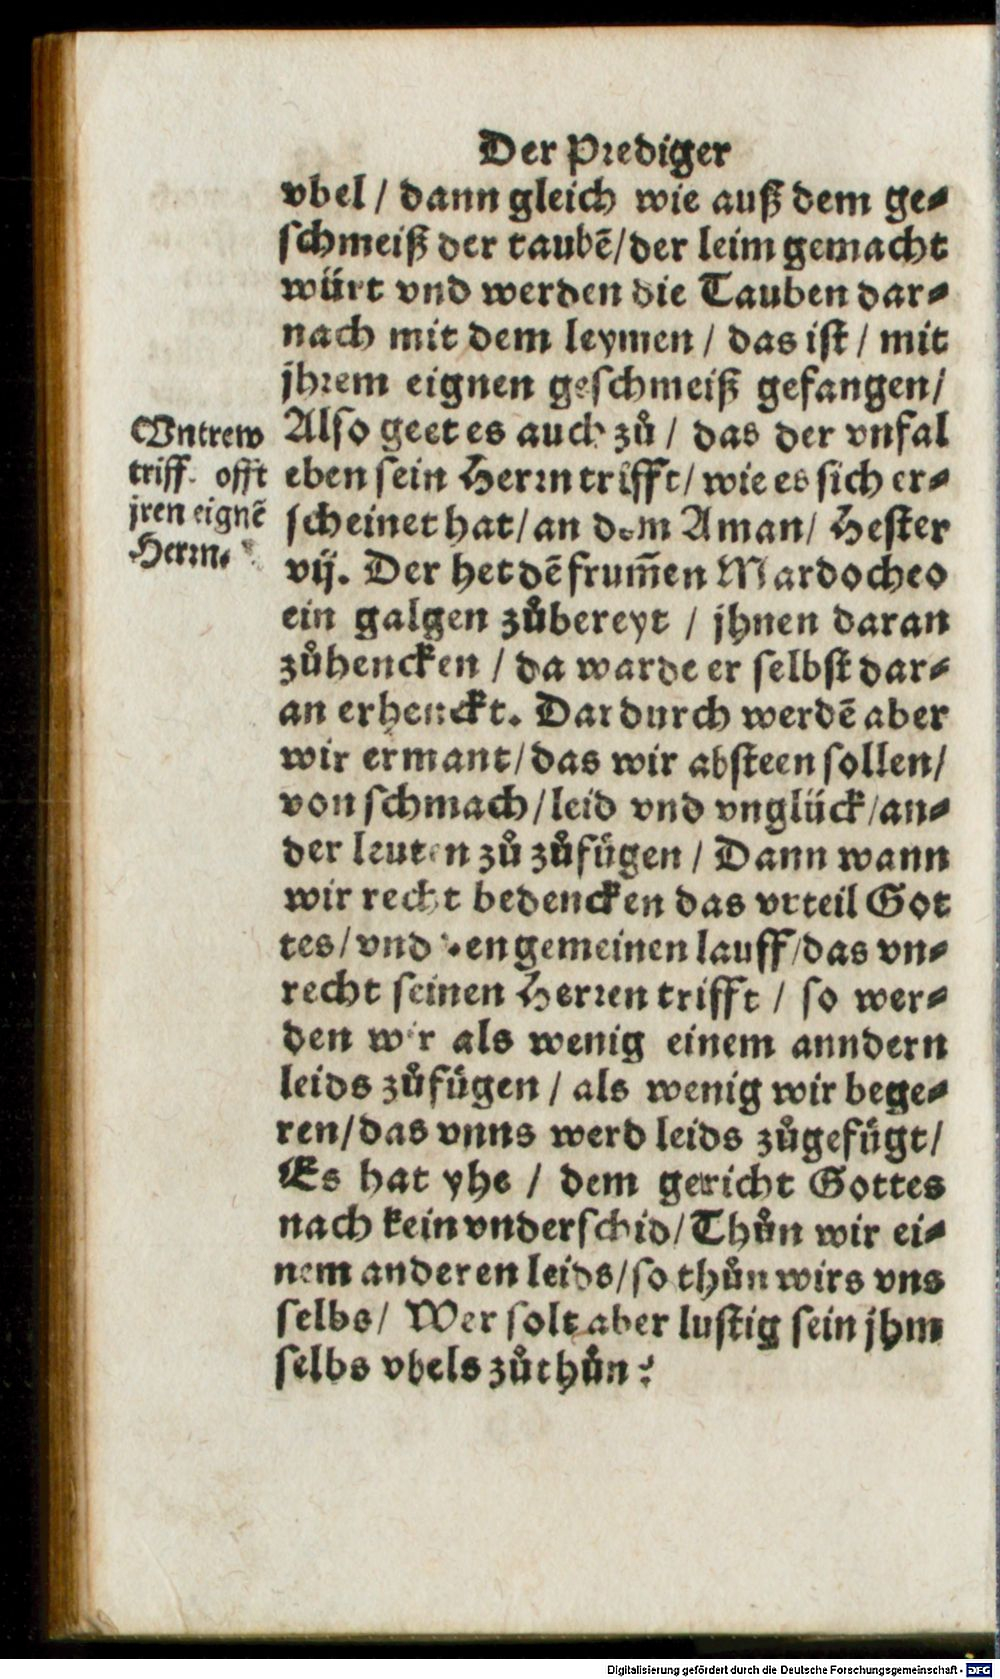 Der Prediger
vbel / dann gleich wie auß dem ge⸗
schmeiß der taubẽ/der leim gemacht
würt vnd werden die Tauben dar⸗
nach mit dem leymen / das ist / mit
jhrem eignen geschmeiß gefangen/
Also geet es auch zů / das der vnfal
eben sein Herrn trifft/ wie es sich er⸗
scheinet hat/ an dem Aman/ Hester
vij. Der het dẽ frum̃en Mardocheo
ein galgen zůbereyt / jhnen daran
zůhencken / da warde er selbst dar⸗
an erhenckt. Dardurch werdẽ aber
wir ermant/das wir absteen sollen/
von schmach/leid vnd vnglück/an⸗
der leuten zů zůfügen / Dann wann
wir recht bedencken das vrteil Got
tes/vnd den gemeinen lauff/das vn⸗
recht seinen Herren trifft / so wer⸗
den wir als wenig einem anndern
leids zůfügen / als wenig wir bege⸗
ren/das vnns werd leids zůgefügt/
Es hat yhe / dem gericht Gottes
nach kein vnderschid/Thůn wir ei⸗
nem anderen leids/so thůn wirs vns
selbs/ Wer solt aber lustig sein jhm
selbs vbels zůthůn?
Vntrew
triff offt
jren eignẽ
Herrn.
Digitalisierung gefördert durch die Deutsche Forschungsgemeinschaft - DFG